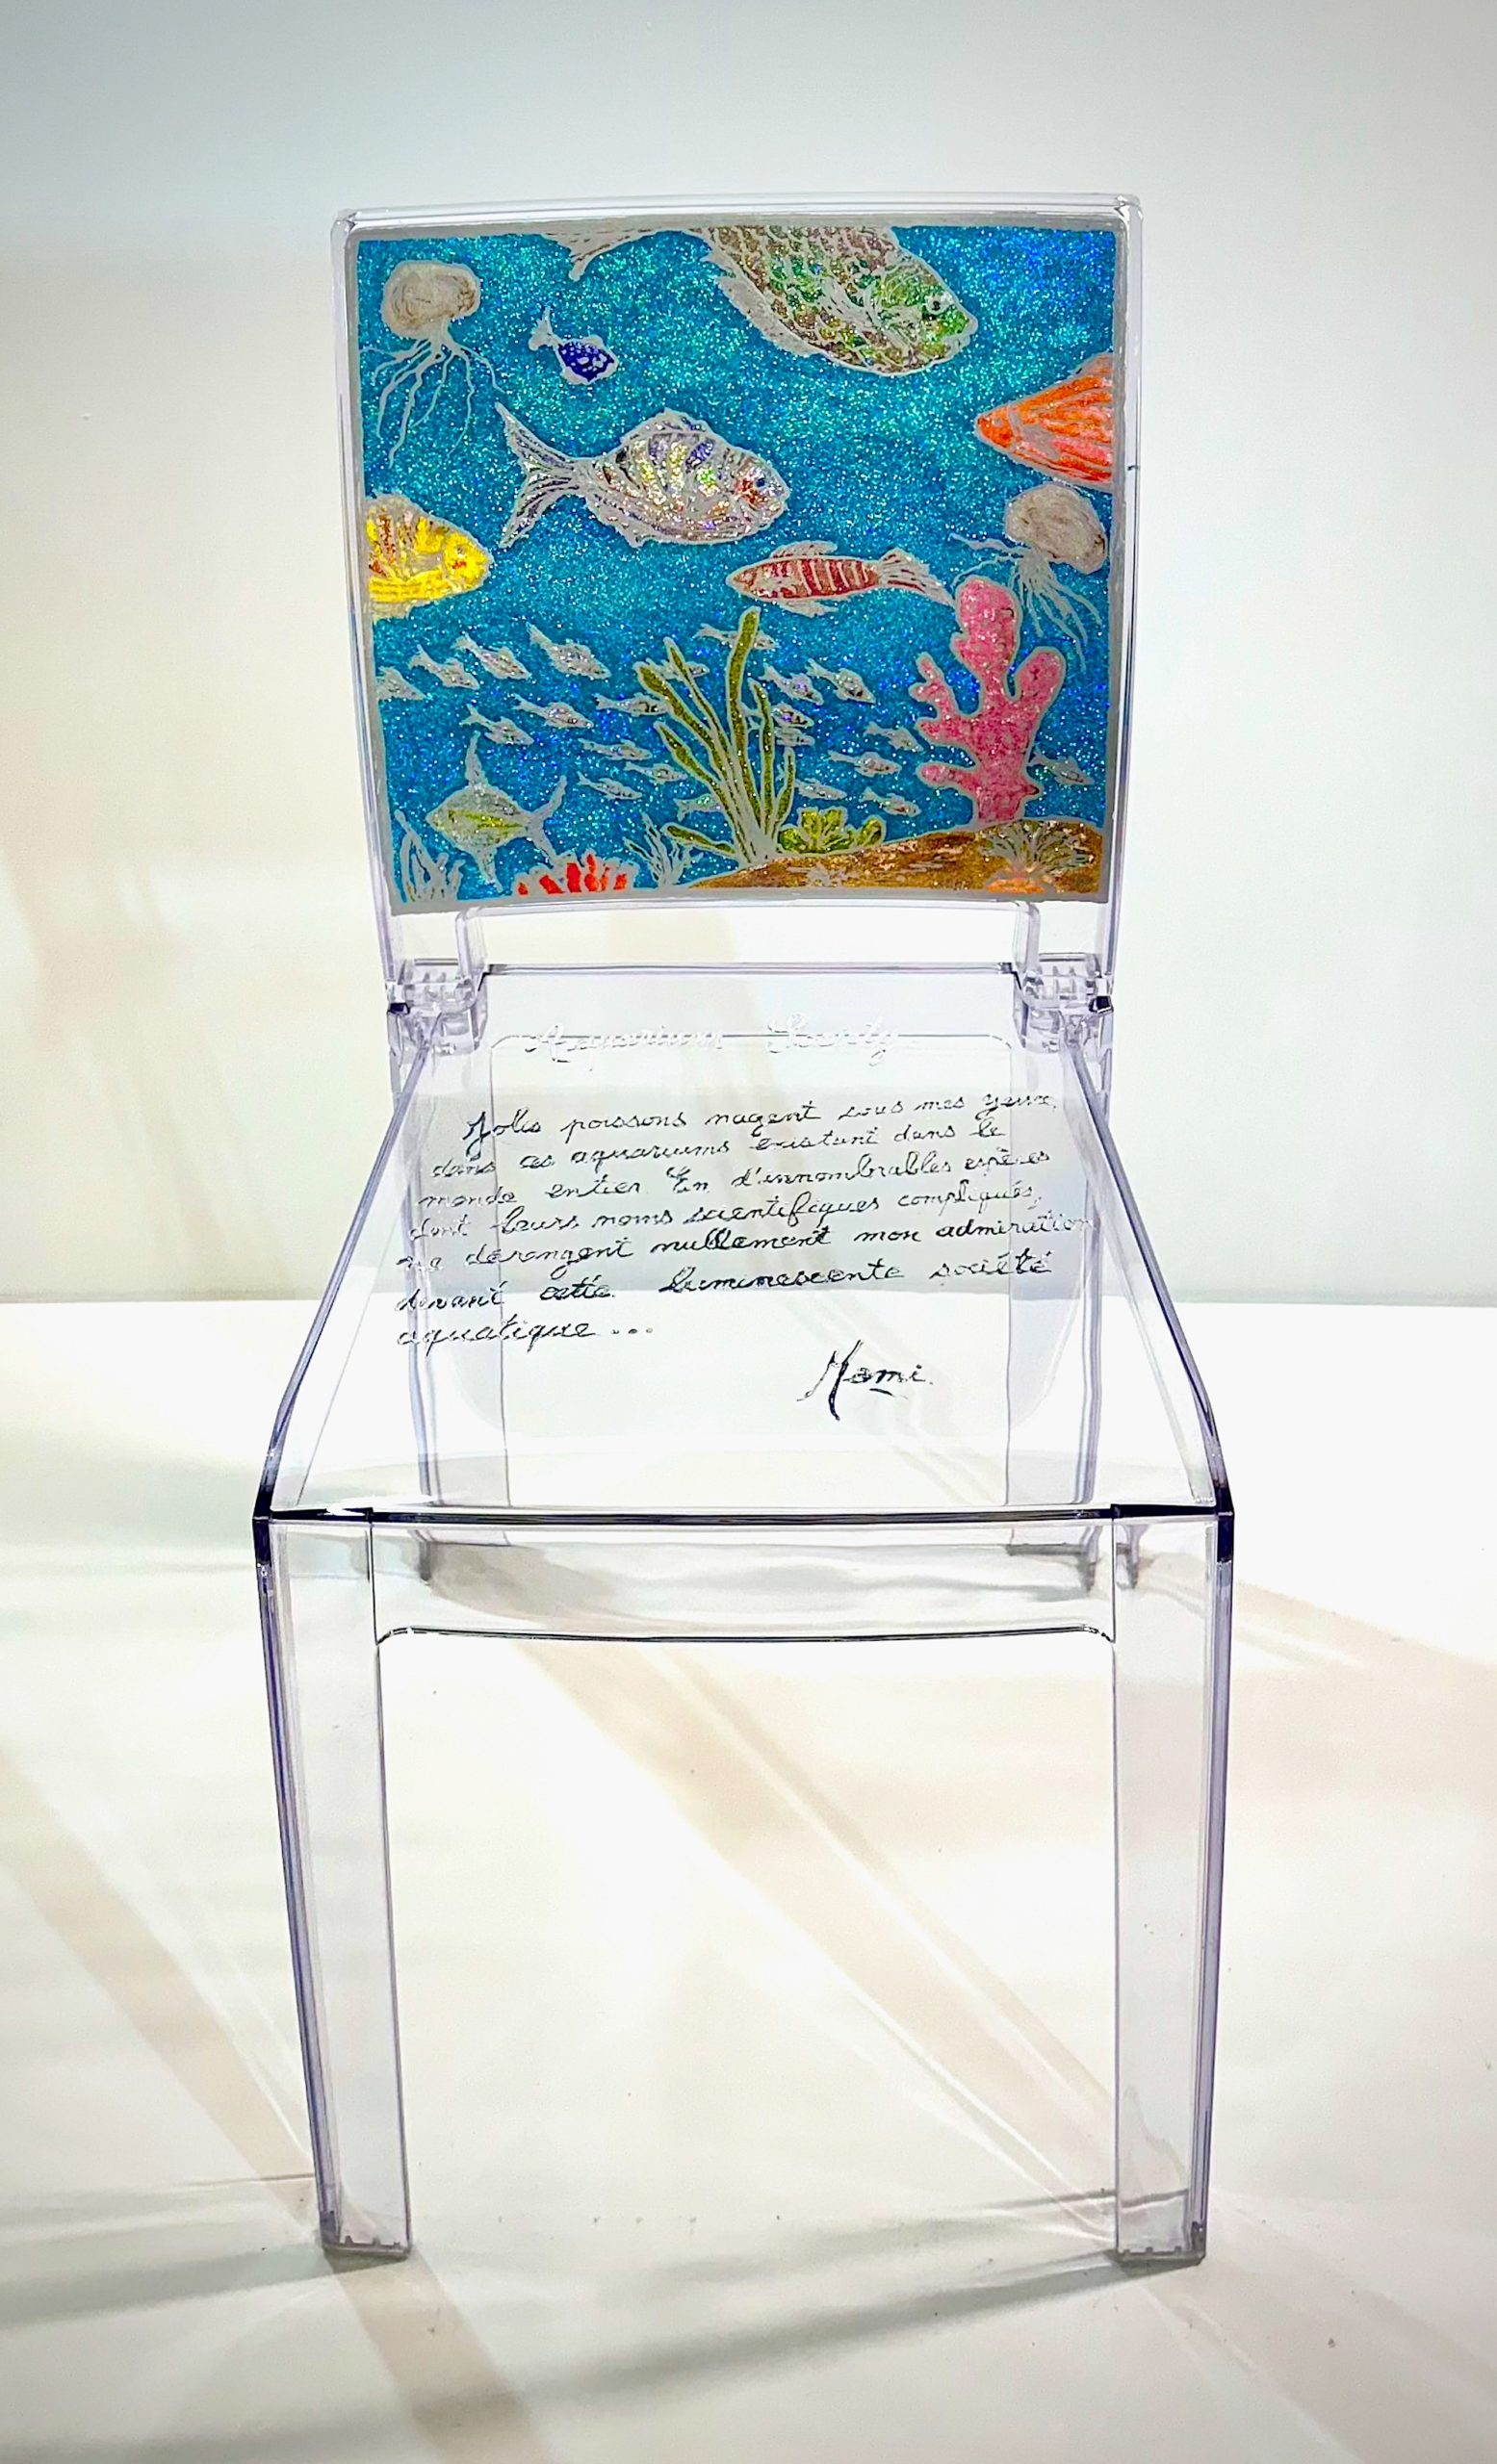 Aquarium Society
Jolis poissons nagent sous mes yeux,
dans ces aquariums existant dans le
monde entier. En d'innombrables espèces
dont leurs noms scientifiques compliqués,
ne dérangent nullement mon admiration
devant cette luminescente société
aquatique...
Momi.